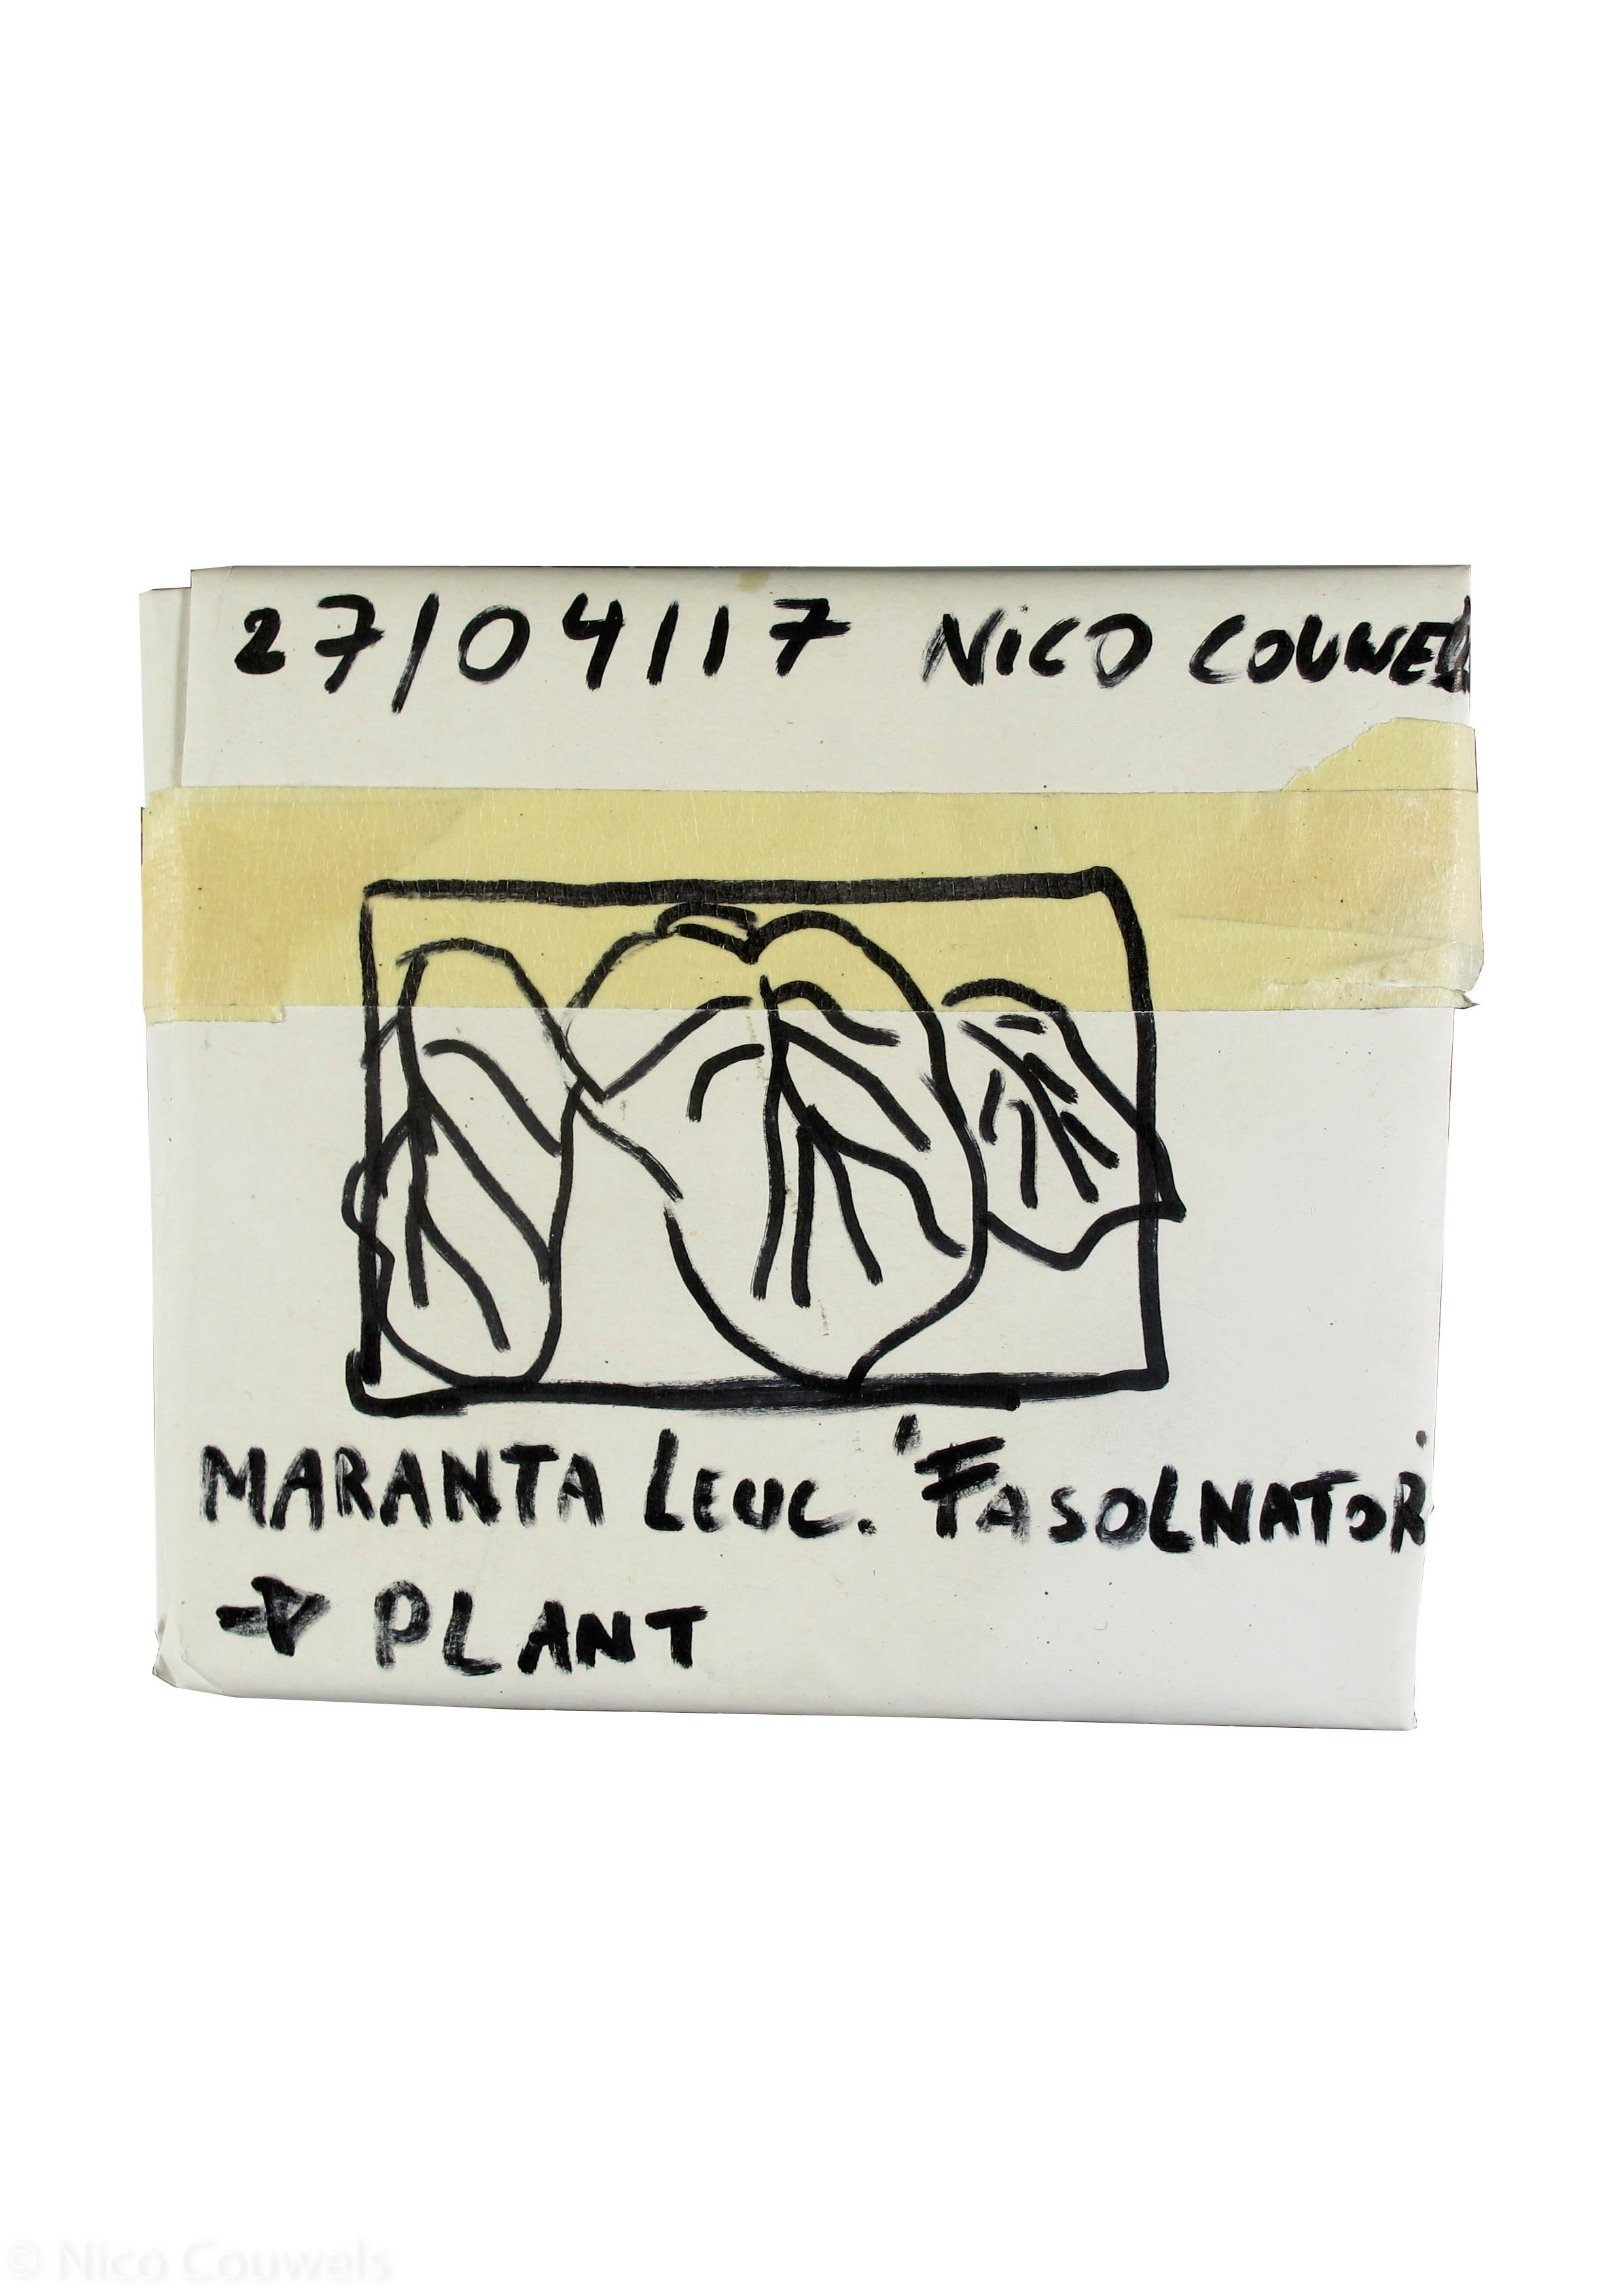 27/04/17 NICO COUWELS
MARANTA LEUC. 'FASOLNATOR'
→ PLANT
© Nico Couwels